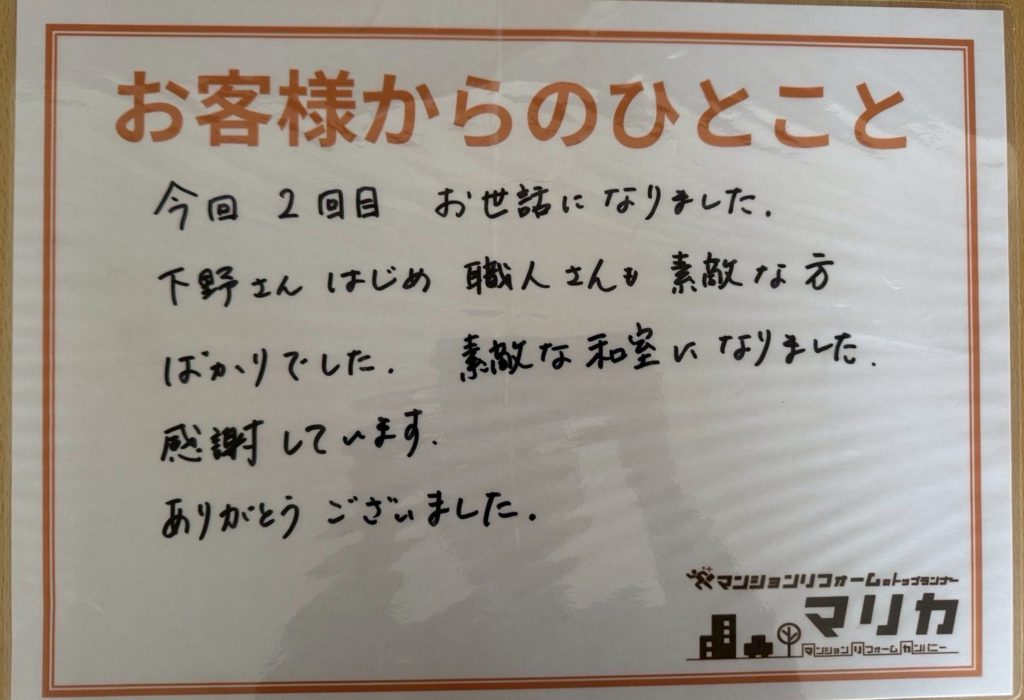 お客様からのひとこと
今回 2回目 お世話になりました.
下野さん はじめ 職人さんも 素敵な方
ばかりでした. 素敵な和室になりました.
感謝しています.
ありがとう ございました.
マンションリフォームのトップランナー
マリカ
マンションリフォームカンパニー